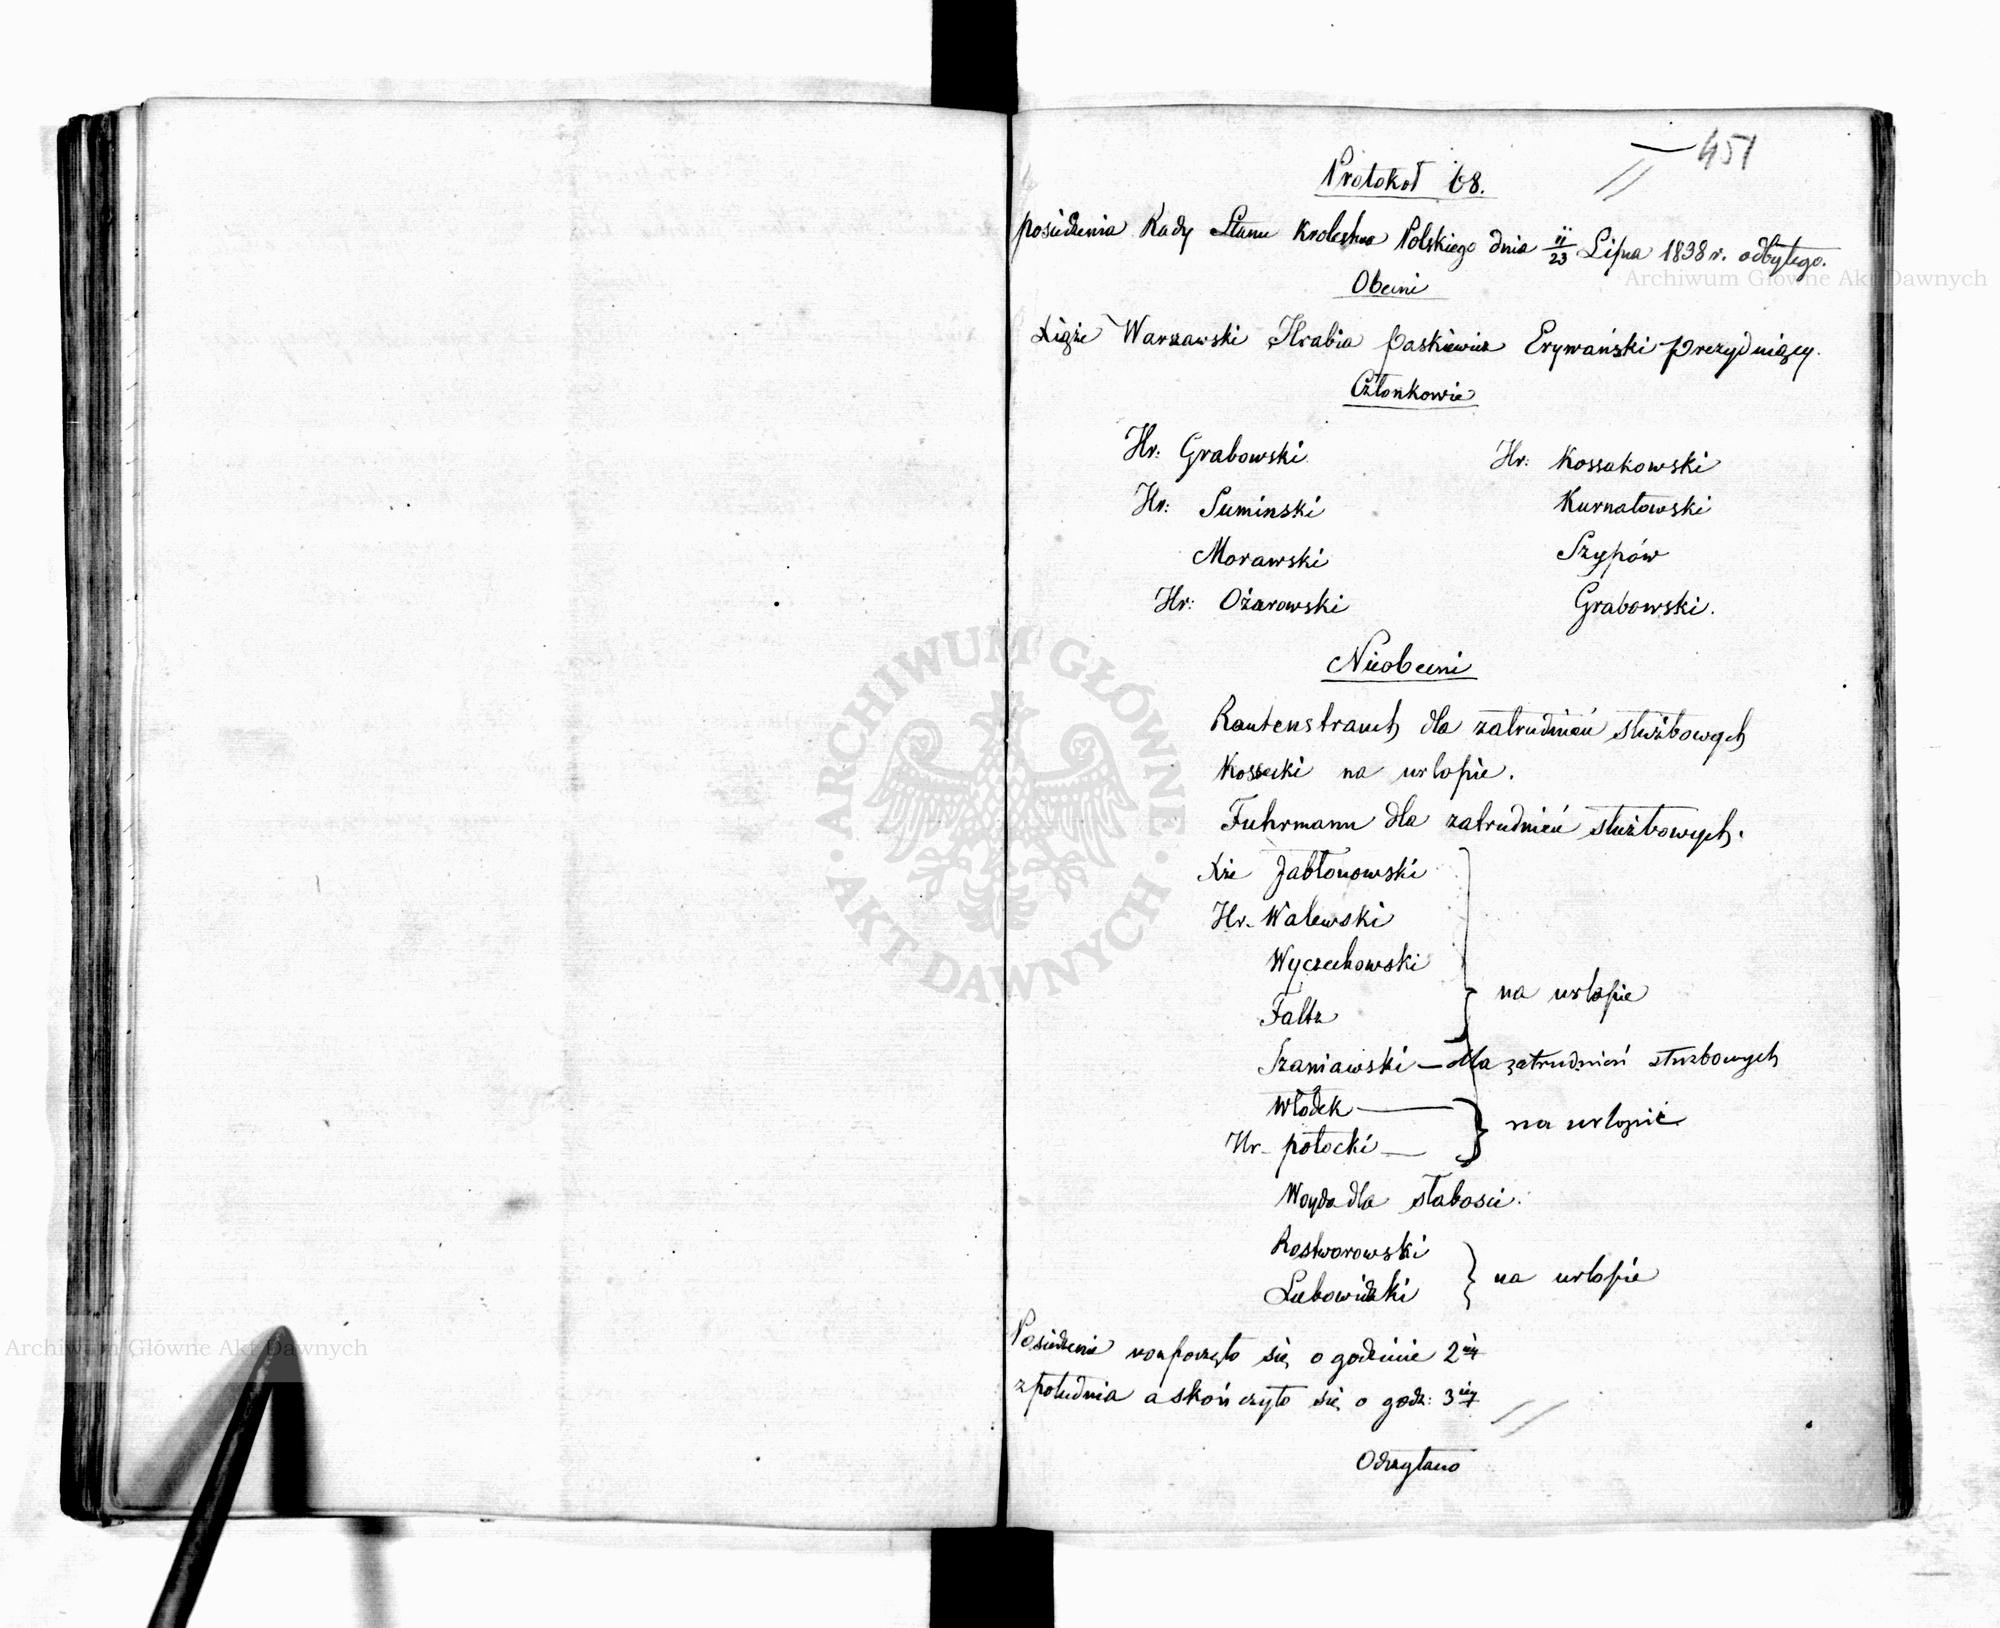 451
Protokoł 68.
posiedzenia Rady Stanu Krolestwa Polskiego dnia 11/23 Lipca 1838 r. odbytego.
Obecni
Xiąże Warszawski Hrabia Paskiewicz Erywański Prezydujący.
Członkowie
Hr: Grabowski Hr: Kossakowski
Hr: Suminski Kurnatowski
Morawski Szypów
Hr: Ożarowski Grabowski.
Nieobecni
Rautenstrauch dla zatrudnień służbowych
Kossecki na urlopie.
Fuhrmann dla zatrudnień służbowych.
Xże Jabłonowski
Hr. Walewski
Wyczechowski
na urlopie
Faltz
Szaniawski — dla zatrudnień służbowych
Włodek — na urlopie
Hr. Potocki —
Woyda dla słabosci.
Rostworowski
Lubowidzki na urlopie
Posiedzenie rozpoczęło się o godzinie 2ej
z południa a skończyło się o godz: 3ej
Odczytano
ARCHIWUM GŁÓWNE AKT DAWNYCH
Archiwum Główne Akt Dawnych
Archiwum Główne Akt Dawnych